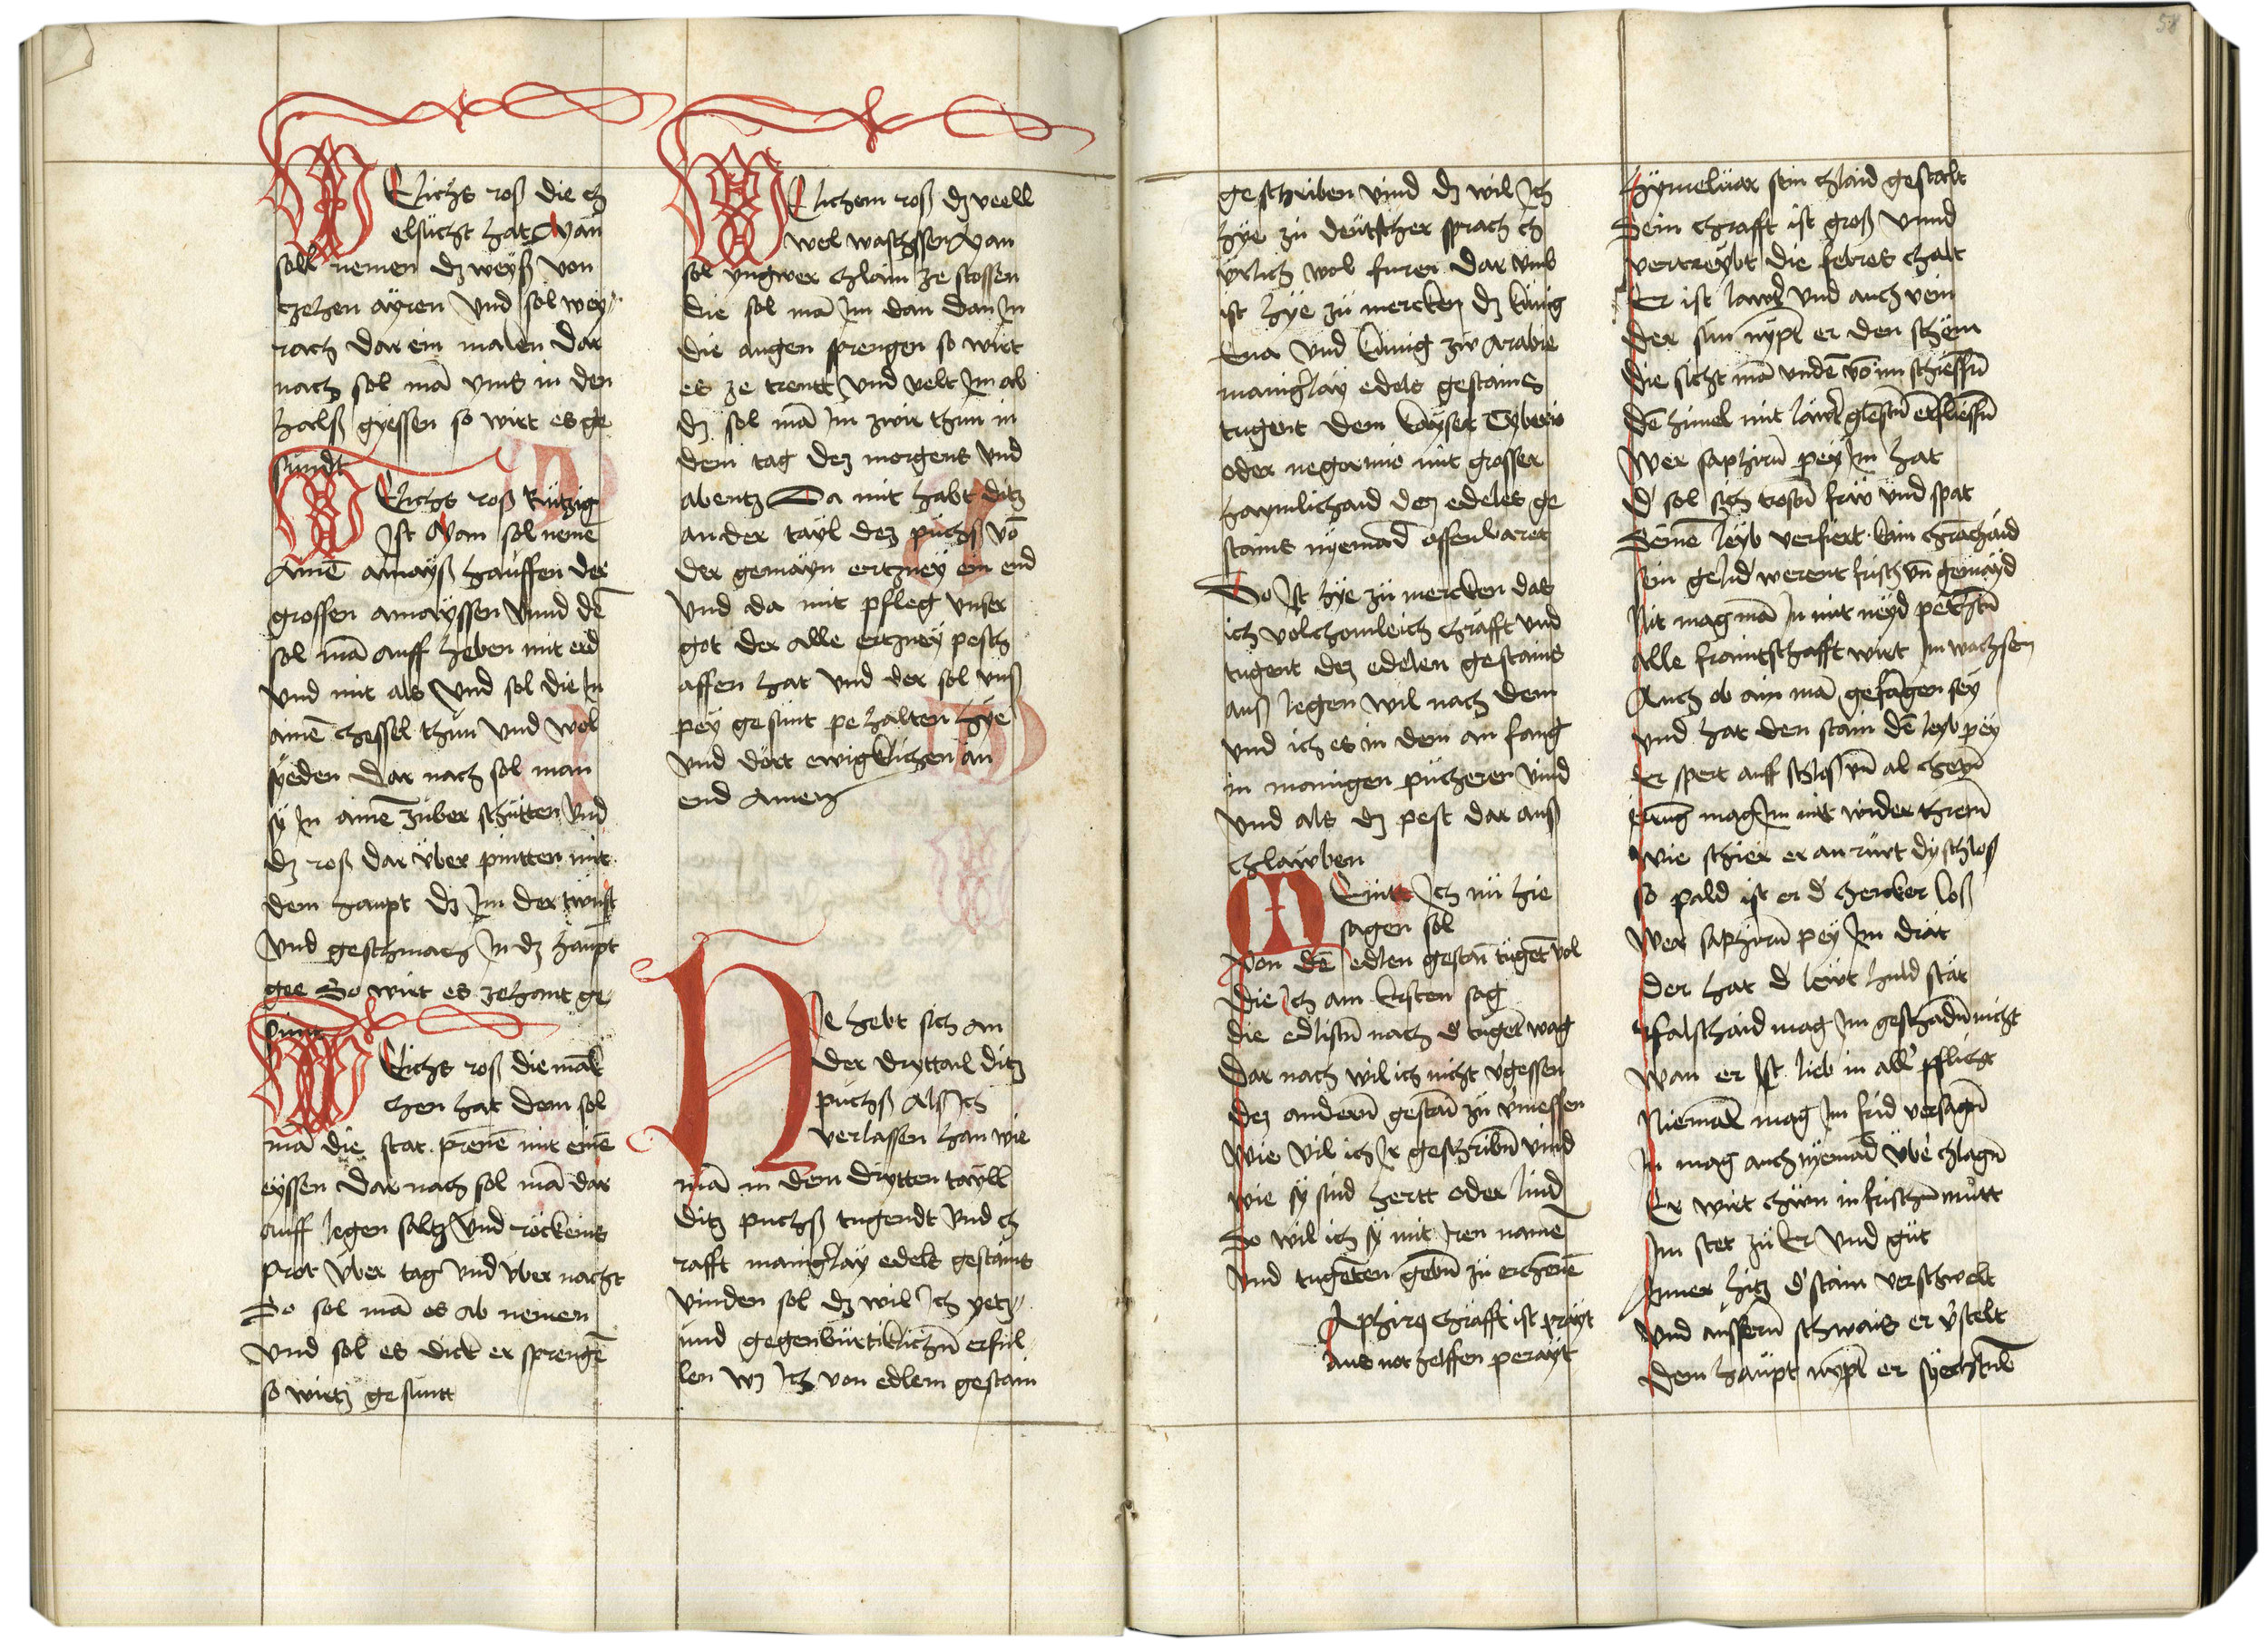 WElichs roß die ch
elsücht hat Man
soll nemen dz weyß von
tzehen ayren Vnd sol wey¬
rach dar ein malen Dar
nach sol mā yms in den
halß gyessen so wirt es ge
sundt
WElichs roß Rützig
Ist Man sol nemē
Ainē amayß hauffen der
grossen amayssen Vnnd dē
sol mā auff heben mit erd
vnd mit als Vnd sol die In
ainē chessel thun Vnd wol
syeden Dar nach sol man
sy In ainē züber schütten Vnd
dz roß dar über pintten mit
dem haupt dz Im der twnst
Vnd geschmach In dz haupt
gee So wirt es zehant ge¬
sunt
WElichs roß die mäl
chen hat dem sol
mā die stat prenē mit einē
eyssen dar nach sol mā dar
auff legen saltz Vnd röckeins
prot Vber tag Vnd vber nacht
So sol mā es ab nemen
Vnd sol es dick er sprengē
so wirtz gesuntt
WElichem roß dz veell
wel wachssen Man
sol yngwer chlain ze stossen
die sol mā Im dan dan In
die augen sprengen so wirt
es ze trentt Vnd velt Im ab
dz sol mā Im zwir thun in
dem tag dez morgens Vnd
abentz Da mit habt ditz
ander tayl dez puchß vō
der gemayn ertzney ein end
Vnd da mit pfleg vnser
got der alle ertzney pesch
affen hat Vnd der sol vnß
pey gesunt pe halten hye
Vnd dort ewigklichen an
end Amen
HIe hebt sich an
der dryttail ditz
puchß Alß Ich
verlassen han wie
mā in dem drytten tayll
ditz puchß tugendt Vnd ch
rafft maingerlay edels gestains
Vinden sol dz wil Ich yetz¬
und gegenbürtiklichn̄ erfül
len wz Ich von edlem gestain
geschriben vind dz wil Ich
hye zu deutscher sprach ch
ürlich wol furen Dar vmb
ist hye zu mercken dz künig
Eua Vnd künig zw Arabie
manigerlay edels gestains
tugent dem kayser Tyberio
oder negorinis mit grosser
haymlichaid dez edeles ge
stains nyemād offenbaret
So Ist hye zu mercken das
ich volchomleich chrafft Vnd
tugent dez edelen gestains
auß legen wil nach dem
Vnd ich es in dem an fang
in manigen pücheren vind
Vnd als dz pest dar auß
chlawben
MEintt Ich nü hie
sagen sol
Von dē edlen gestain tugēt vol
die Ich am Ersten sag
die edlistn̄ nach d' tugēt wag
Dar nach wil ich nicht v'gessen
dez andern̄ gestain zu v'messen
Wie vil ich Ir geschribn̄ vind
wie sy sind hertt oder lind
So wil ich sy mit Iren namē
Vnd tugēten gebn̄ zu erchenē
Aphirꝯ chrafft ist prayt
Aus not helffen perayt
Hymeluar sein chlaid gestalt
Sein chrafft ist groß Vnnd
vertreybt die febres chalt
Er ist lawt' Vnd auch rein
der sun nypt er den schein
Die sicht mā vndē vō im schiessn̄
Dē himel mit lawt' glestn̄ erfliessn̄
Wer saphirū pey Im hat
d' sol sich trostn̄ frw vnd spat
Seinē leyb verfiert kain chranchaid
sein gelid werent frisch vn̄ gemayd
Nit mag mā In mit neyd
Alle frainttschafft wirt Im wachsen
Auch ob ain mā gefāgen sey
Vnd hat den stain dē leyb pey
Er spert auff schlosß vn̄ al chetn̄
mag Im nit wider
Wie schier er an rürt dy schloß
so pald ist er d' chercker loß
Wer saphirū pey Im drät
Der hat d' lewt huld stät
falschaid mag Im geschadn̄ nicht
Wan er Ist lieb in all' pflicht
Niemāt mag Im frid versagn̄
In mag auch nyemād übe' chlagn̄
Er wirt chün in frischm mutt
Im stet zu Er Vnd güt
Inner hitz d' stain verschwelt
Vnd aussern̄ schwais er v'stelt
Dem haupt nypt er syechtūb